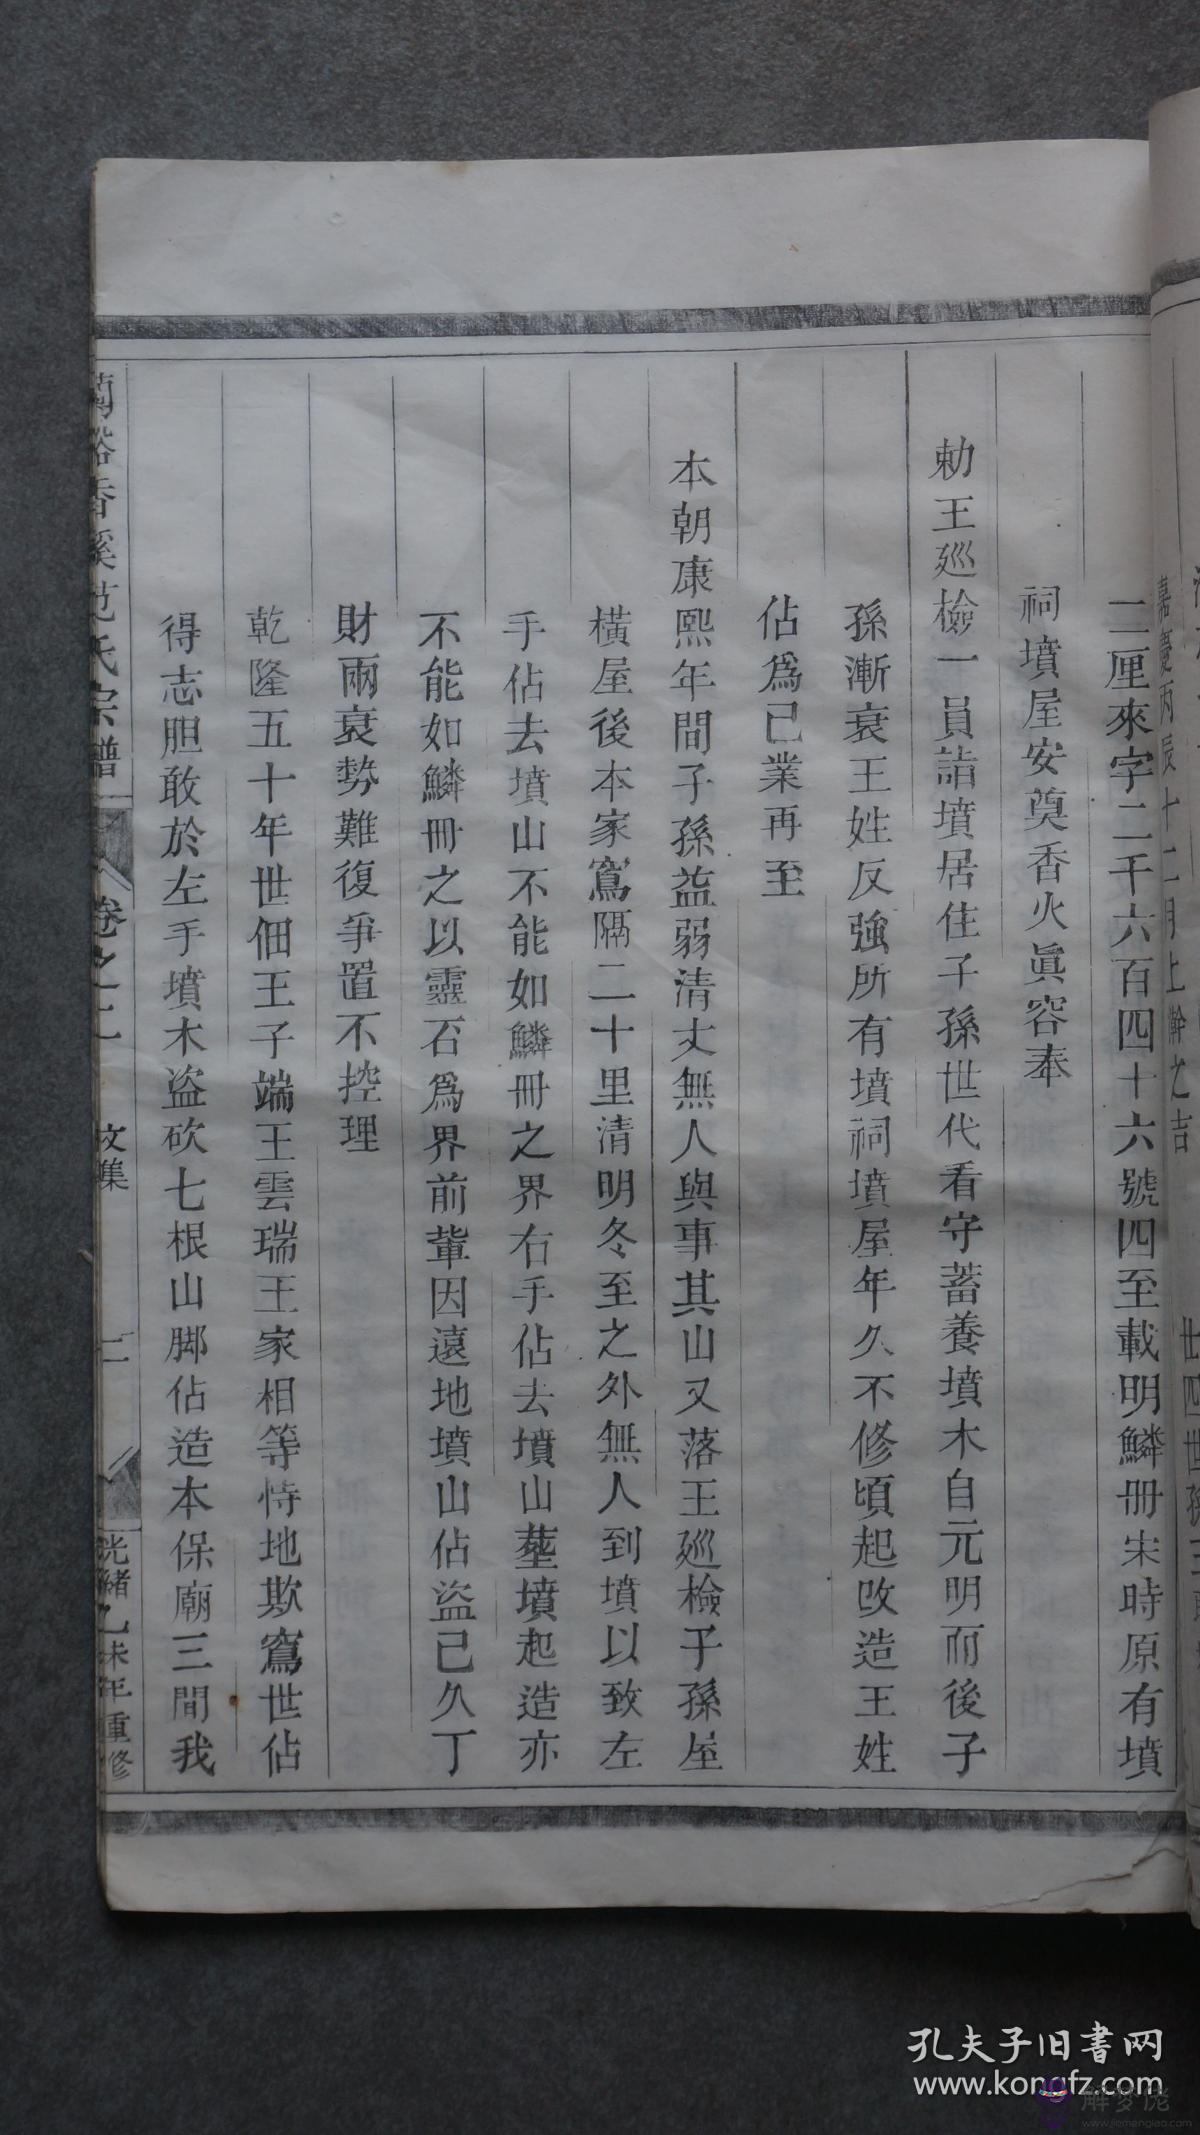 嘉慶丙辰十二月上澣之吉
廿四世孫
二厘來字二千六百四十六號四至載明鱗冊宋時原有墳
祠墳屋安奠香火眞容奉
勅王廵檢一員詣墳居住子孫世代看守蓄養墳木自元明而後子
孫漸衰王姓反強所有墳祠墳屋年久不修頃起改造王姓
佔爲己業再至
本朝康熙年間子孫益弱清丈無人與事其山又落王廵檢子孫屋
橫屋後本家寫隔二十里清明冬至之外無人到墳以致左
手佔去墳山不能如鱗冊之界右手佔去墳山塟墳起造亦
不能如鱗冊之以靈石爲界前軰因遠地墳山佔盜已久丁
財兩衰勢難復爭置不控理
乾隆五十年世佃王子端王雲瑞王家相等恃地欺寫世佔
得志胆敢於左手墳木盜砍七根山脚佔造本保廟三間我
蘭谿香溪范氏宗譜 卷之二 文集 二 光緒乙未年重修
孔夫子旧书网
www.kongfz.com
解梦佬
www.jiemenglao.com